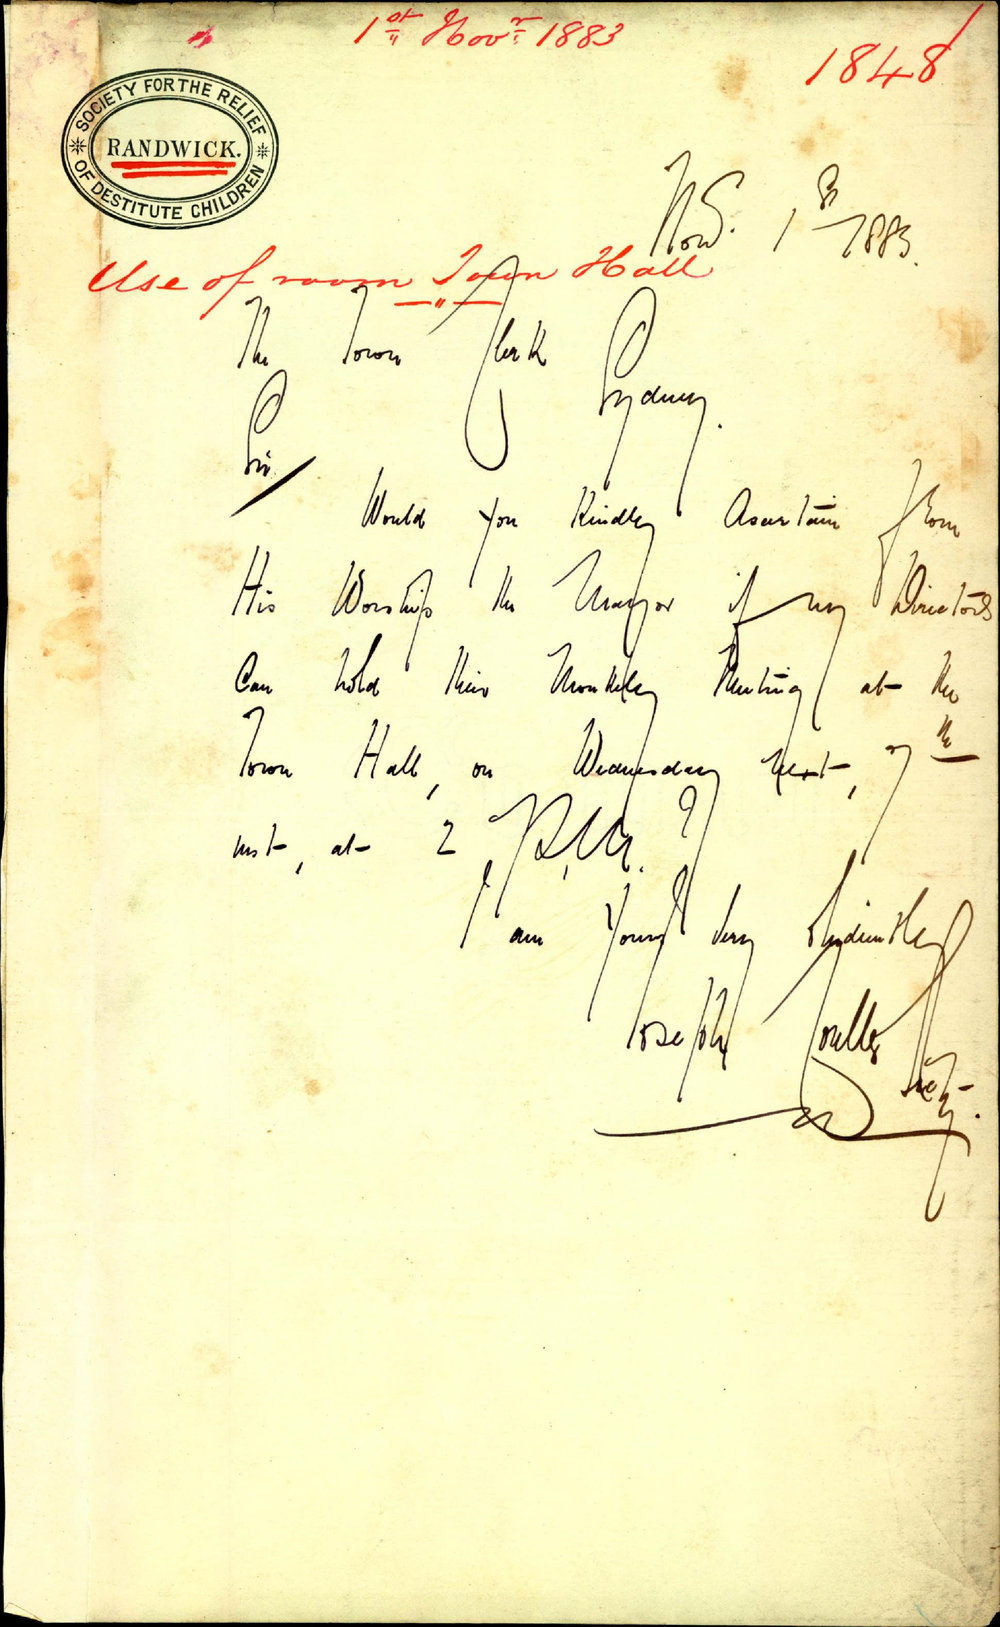 1st Novr 1883
1848
SOCIETY FOR THE RELIEF
OF DESTITUTE CHILDREN
RANDWICK.
Novr. 1st 1883.
Use of room Town Hall
The Town Clerk
Sydney.
Sir/
Would you Kindly Ascertain from
His Worship the Mayor if my Directors
Can hold their Monthly Meeting at the
Town Hall, on Wednesday next, 7th
inst, at 2, P.M.?
I am Yours very Obediently
Joseph Coulter
Secty.